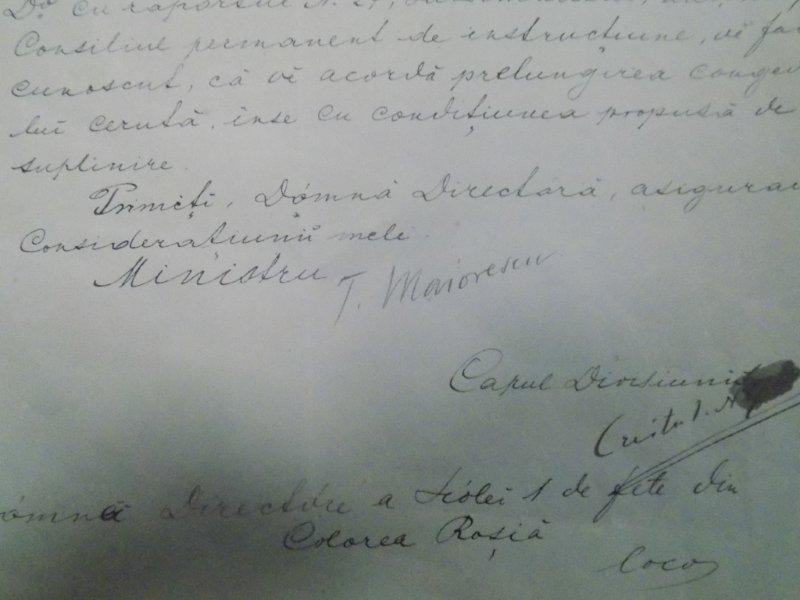 Do cu raportul N.
Consiliul permanent de instrucțiune, vĕ fac
cunoscut, că vĕ acordă prelungirea congediu
lui cerută, inse cu condițiunea propusă de
suplinire.
Primiți, Dómnă Directóră, asigurarea
Considerațiunii mele.
Ministru T. Maiorescu
Capul Divisiunii
Dómnă Directóre a Scólei 1 de fete din
Colorea Roșiă